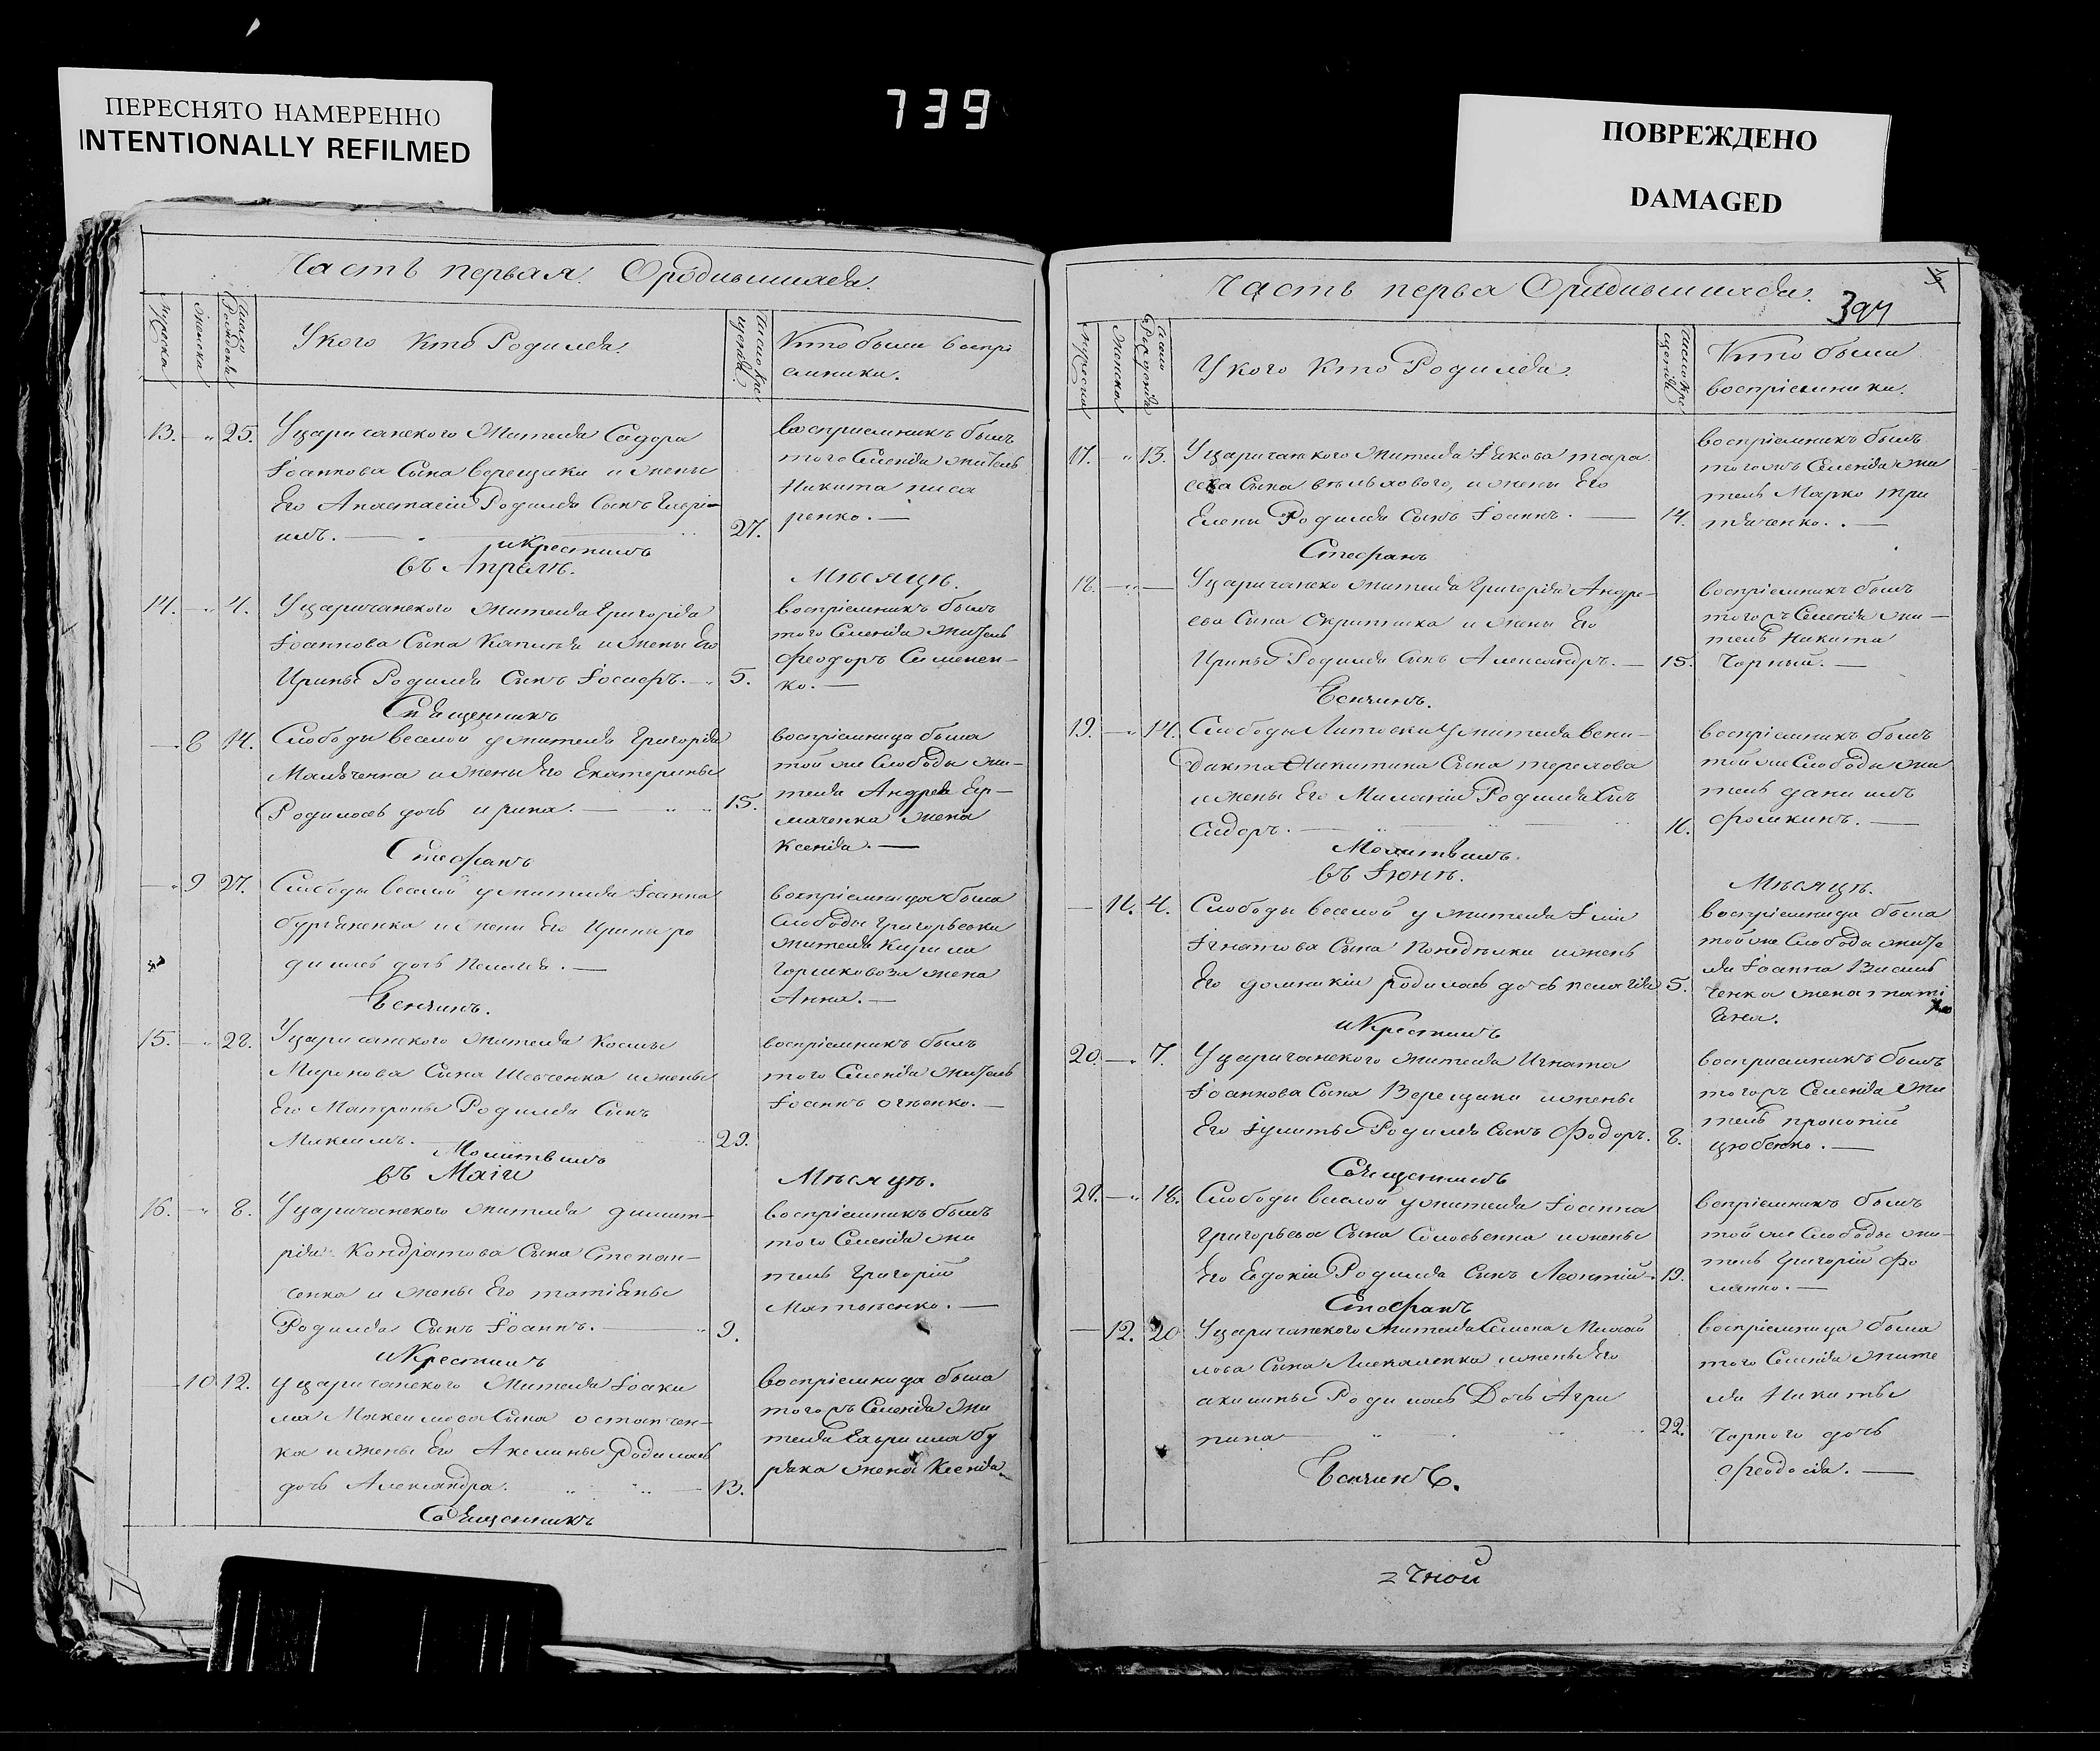 ПЕРЕСНЯТО НАМЕРЕННО
INTENTIONALLY REFILMED
739
ПОВРЕЖДЕНО
DAMAGED
Часть первая. Ородившихся.
мужеска
женска
Число Рождения
Укого Кто Родился.
Число Крещения
Кто были воспри
емники.
13. 25. Уцаричанского Жителя Сидора
Іоаннова Сына верещаки и жены
Его Анастасіи Родился Сынъ
27.
воспріемникъ былъ
того Селенія житель
Никита писа
ренко.
и Крестилъ
въ Апрелѣ.
Мѣсяцѣ.
14. 4. Уцаричанского жителя Григорія
Іоаннова Сына и жены Его
Ирины Родился Сынъ Іосифъ. 5.
воспріемникъ былъ
того Селенія житель
Феодоръ Симонен-
ко.
Священникъ
8 14. Слободы веселой у жителя Григорія
и жены Его Екатерины
Родилась дочь ирина. 15.
воспріемница была
той же Слободы жи-
теля Андрея Ер-
маченка жена
Ксенія.
Стефанъ
9 27. Слободы веселой у жителя Іоанна
и жены Его Ирины ро
дилась дочь
воспріемница была
Слободы Григорьевки
жителя Кирила
жена
Анна.
Бенчинъ.
15. 28. Уцаричанского жителя Космы
Миронова Сына Шевченка и жены
Его Матроны Родился Сынъ
Максимъ. 29.
воспріемникъ былъ
того Селенія житель
Іоаннъ
Молитвилъ
въ Маіи
Мѣсяцѣ.
16. 8. Уцаричанского жителя димит-
рія Кондратова Сына Степан-
ченка и жены Его татіаны
Родился Сынъ Іоаннъ. 9.
воспріемникъ былъ
того Селенія жи
тель Григорій
и Крестилъ
10 12. уцаричанского жителя Іоаки
ма Максимова Сына остапчен-
ка и жены Его Акелины Родилась
дочь Александра. 13.
воспріемница была
тогожъ Селенія жи
теля Гавриила бу
ряка жена Ксенія.
Священникъ
Часть перва Ородившихся.
394
мужеска
Женска
Число Рождения
Укого Кто Родился.
Число Крещения
Кто были
воспріемники.
17. 13. Уцаричанского жителя Іякова тара
сова Сына , и жены Его
Елены Родился Сынъ Іоаннъ. 14.
воспріемникъ былъ
тогожъ Селенія жи
тель Марко три
тяченко.
Стефанъ
18. Уцаричанско жителя Григорія Андре-
ева Сына Скрипника и жены Его
Ирины Родился Сынъ Александръ. 15.
воспріемникъ былъ
тогожъ Селенія жи-
тель Никита
Чорный.
Бенчинъ.
19. 14. Слободы у жителя вени-
дикта Никитина Сына терехова
и жены Его Миланіи Родился Сынъ
Сидоръ. 16.
воспріемникъ былъ
той же Слободы жи
тель данилъ
фомкинъ.
Молитвилъ.
въ Іюнѣ.
Мѣсяцѣ.
11. 4. Слободы веселой у жителя Іліи
Ігнатова Сына Понедѣлки и жены
Его домникіи родилась дочь пелагія 5.
воспріемница была
той же Слободы жите
ля Іоанна
ченка жена тати
яна.
и Крестилъ
20. 7. Уцаричанского жителя Игната
Іоаннова Сына Верещаки и жены
Его Іулиты Родился Сынъ Федоръ. 8.
восприемникъ былъ
тогожъ Селенія жи
тель прокопій
цюбенко.
Священникъ
21. 18. Слободы веселой у жителя Іоанна
Григорьева Сына Соловьенка и жены
Его Евдокіи Родился Сынъ Леонтій. 19.
воспріемникъ былъ
той же Слободы жи-
тель Григорій Фо
менко.
Стефанъ
12. 20 Уцаричанского жителя Семена Михай
лова Сына и жены Его
акилины Родилась Дочь Агри
пина 22.
воспріемница была
того Селенія жите
ля Никиты
Чорного дочь
Феодосія.
Бенчинъ.